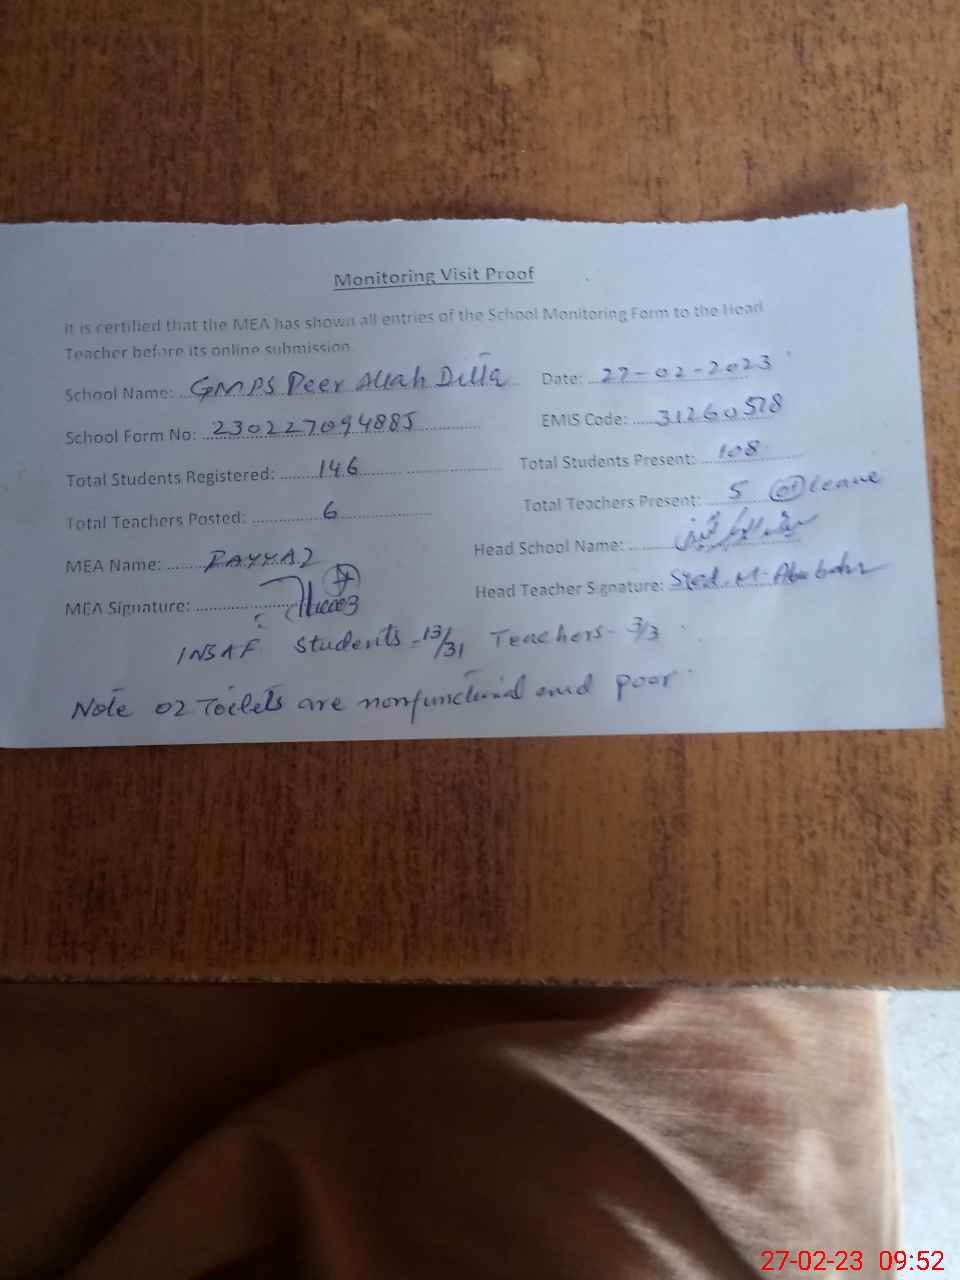 Monitoring Visit Proof
It is certified that the MEA has shown all entries of the School Monitoring Form to the Head
Teacher before its online submission.
School Name: GMPS Peer Allah Ditta Date: 27-02-2023
School Form No: 230227094885 EMIS Code: 31260518
Total Students Registered: 146 Total Students Present: 108
Total Teachers Posted: 6 Total Teachers Present: 5 01 leave
MEA Name: FAYYAZ Head School Name:
MEA Signature: Head Teacher Signature: Syed. M. Abubakr
INSAF Students - 13/31 Teachers - 3/3
Note 02 Toilets are nonfunctional and poor
27-02-23 09:52